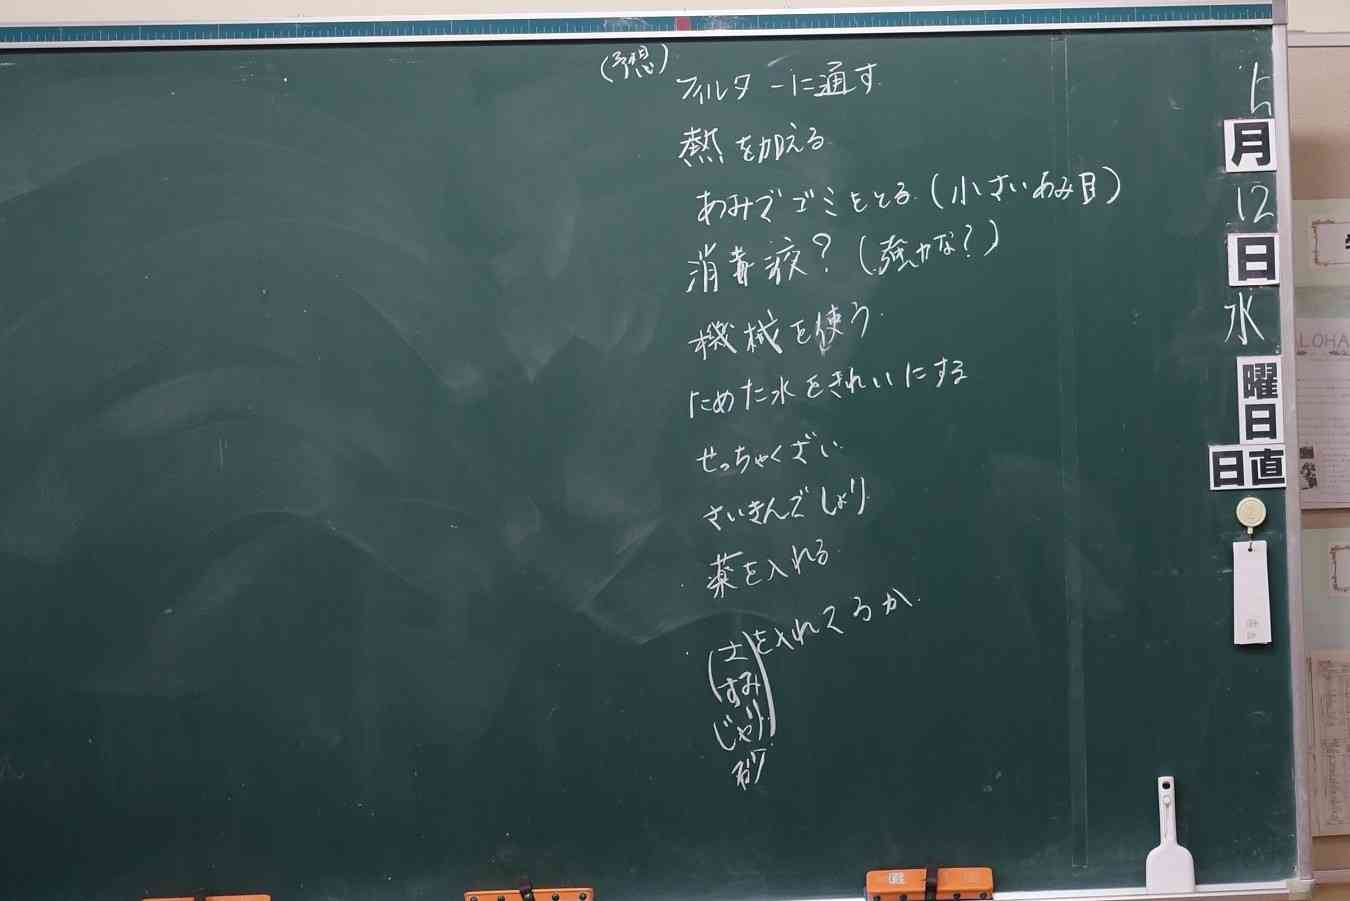 (予想)
フィルターに通す
熱を加える
あみでゴミをとる(小さいあみ目)
消毒液?(強力な?)
機械を使う
ためた水をきれいにする
せっちゃくざい
さいきんでしょり
薬を入れる
(土
すみ
じゃり
砂)
を入れてろか
月
12
日
水
曜
日
日直
LOHA